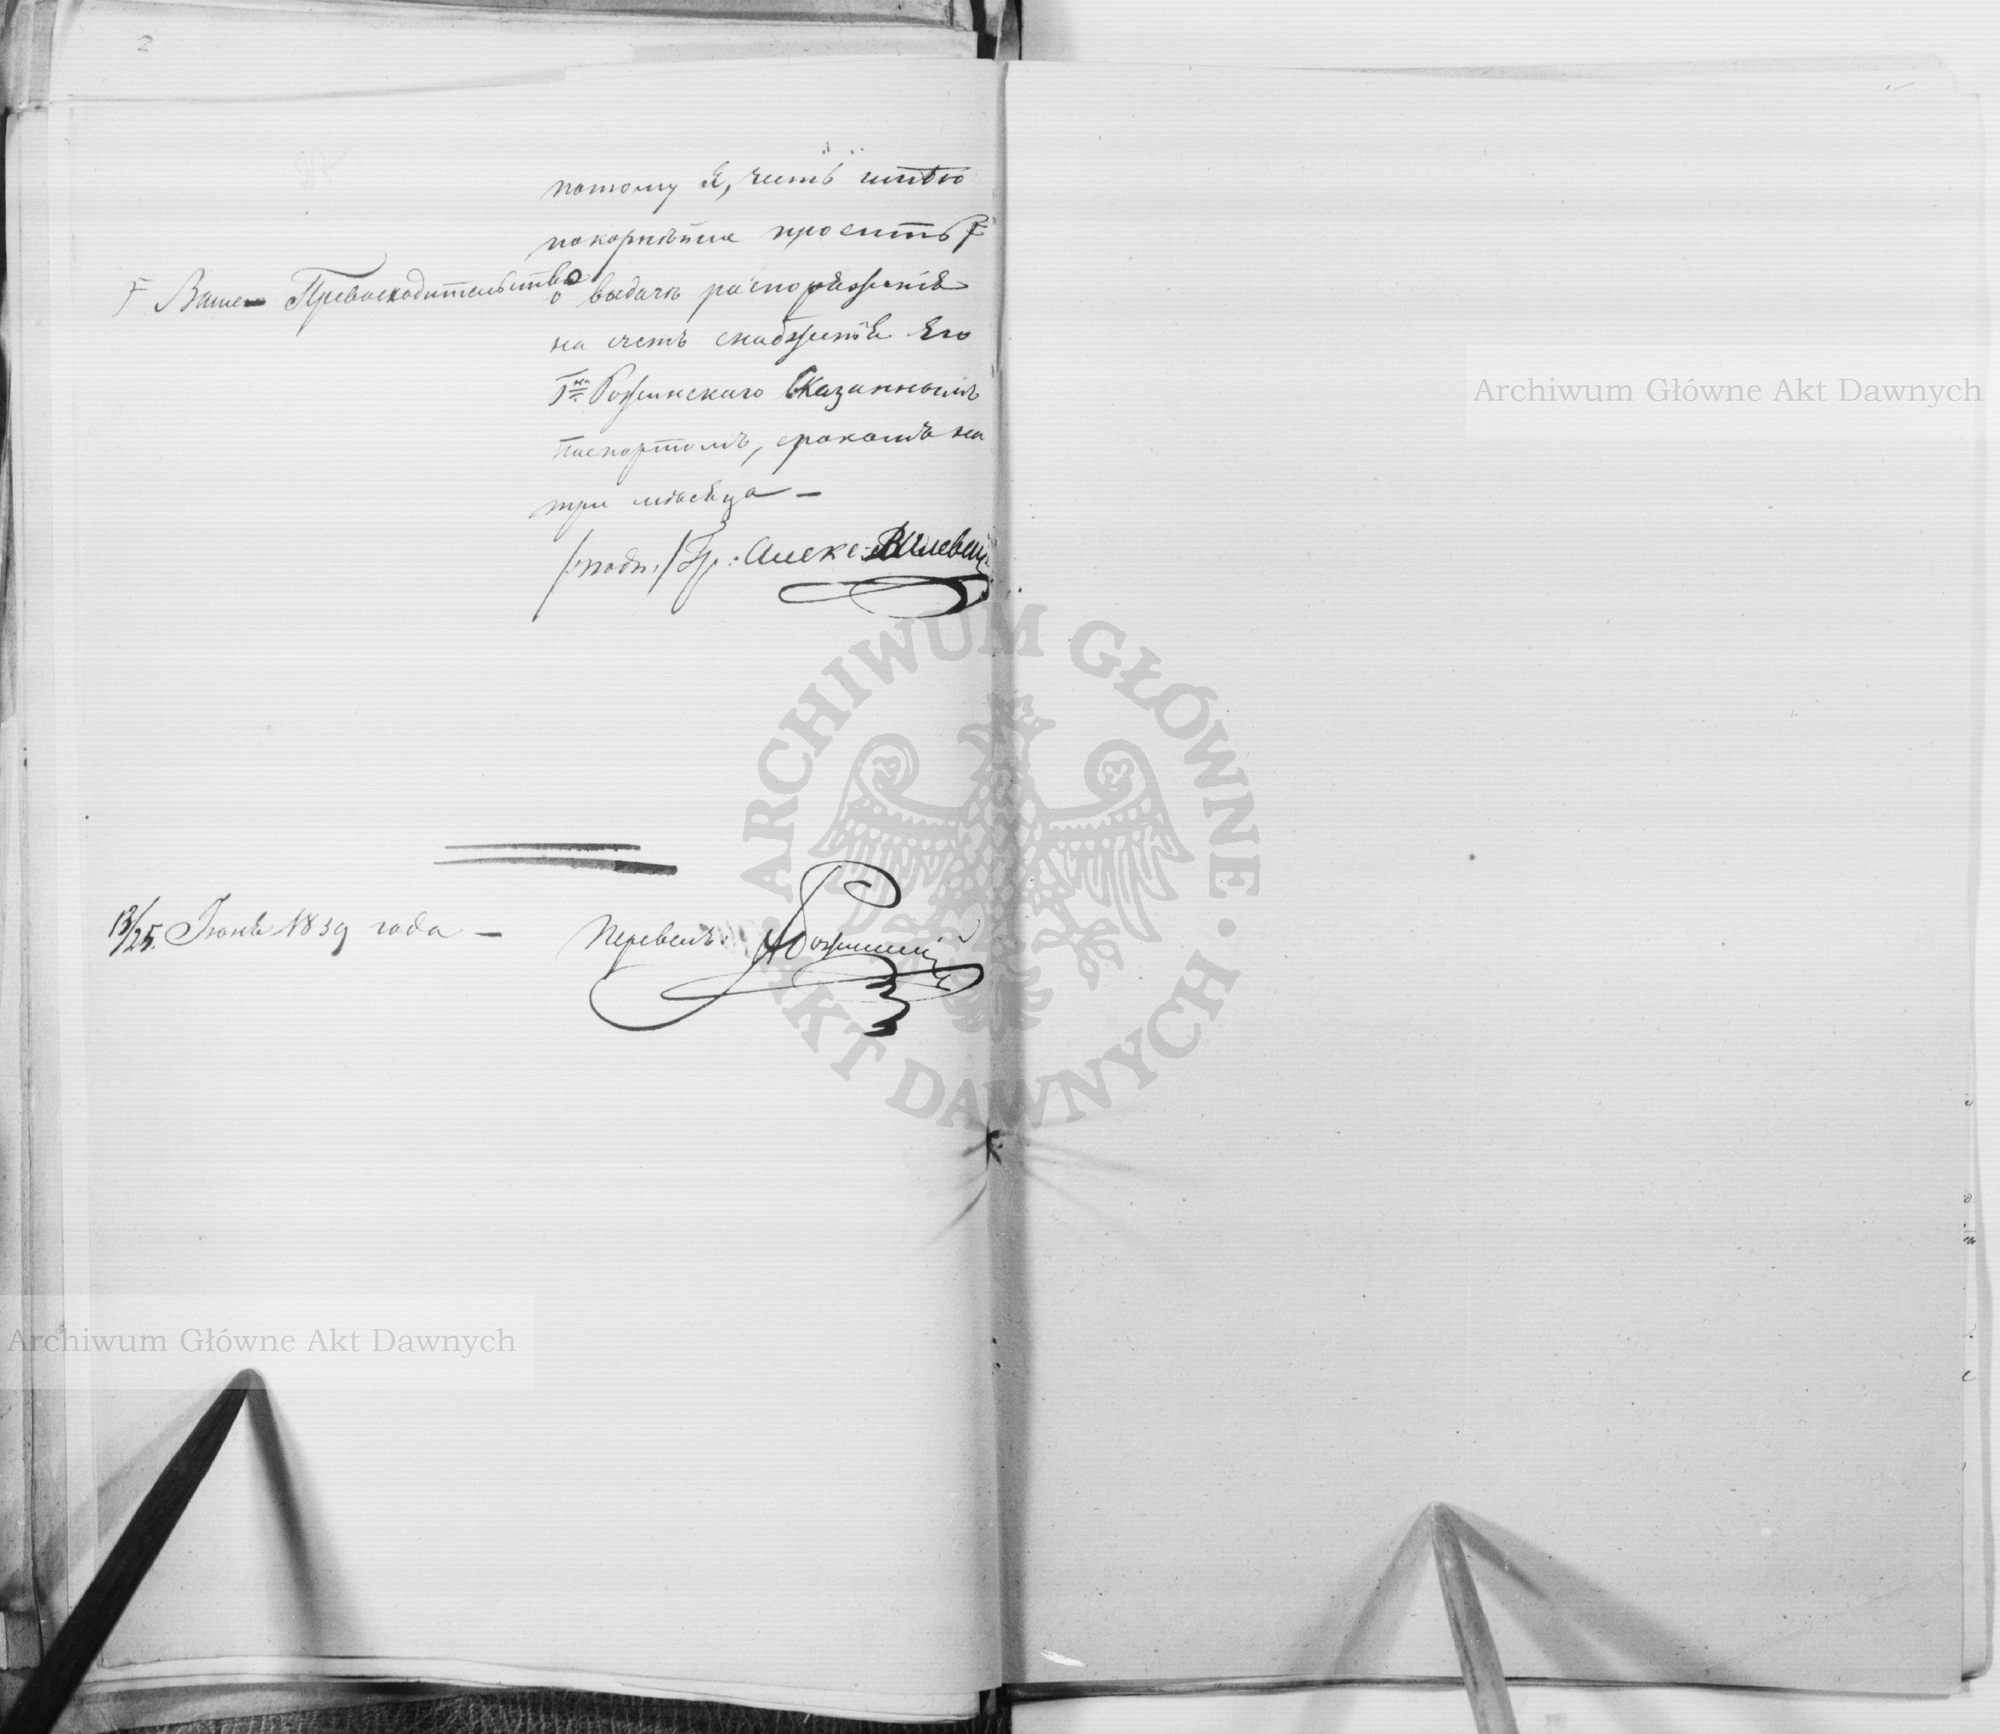 потому я, честь имѣю
покорнѣйше просить F
F Ваше Превосходительство
о выдачѣ распоряженія
на счетъ снабженія Его
Г<sup>на</sup> Рожинскаго сказаннымъ
паспортомъ, срокомъ на
три мѣсяца —
/:подп:/ Гр: Алекс:
13/25. Іюня 1839 года — Перевелъ:
ARCHIWUM GŁÓWNE AKT DAWNYCH
Archiwum Główne Akt Dawnych
Archiwum Główne Akt Dawnych